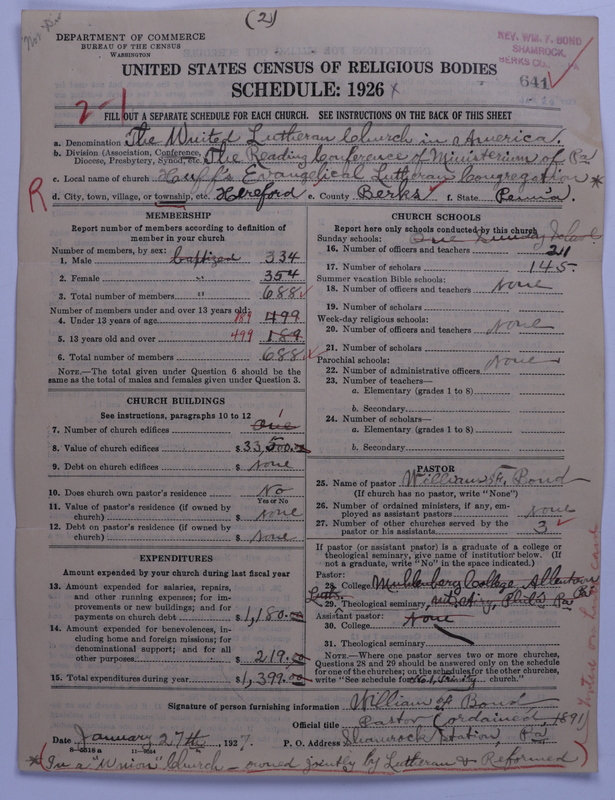 (2)
DEPARTMENT OF COMMERCE
BUREAU OF THE CENSUS
WASHINGTON
REV. WM. F. BOND
SHAMROCK,
BERKS CO.
641
UNITED STATES CENSUS OF RELIGIOUS BODIES
SCHEDULE: 1926
2-1
FILL OUT A SEPARATE SCHEDULE FOR EACH CHURCH. SEE INSTRUCTIONS ON THE BACK OF THIS SHEET
a. Denomination The United Lutheran Church in America.
b. Division (Association, Conference, Diocese, Presbytery, Synod, etc. The Reading Conference of Ministerium of Pa
c. Local name of church Huff's Evangelical Lutheran Congregation *
R d. City, town, village, or township, etc. Hereford e. County Berks f. State Penn'a.
MEMBERSHIP
Report number of members according to definition of member in your church
Number of members, by sex:
1. Male baptized 334
2. Female " 354
3. Total number of members " 688
Number of members under and over 13 years old:
4. Under 13 years of age 189 499
5. 13 years old and over 499 189
6. Total number of members 688
NOTE.—The total given under Question 6 should be the same as the total of males and females given under Question 3.
CHURCH BUILDINGS
See instructions, paragraphs 10 to 12
7. Number of church edifices one 1
8. Value of church edifices $ 33,500.
9. Debt on church edifices $ None
10. Does church own pastor's residence No
Yes or No
11. Value of pastor's residence (if owned by church) $ None
12. Debt on pastor's residence (if owned by church) $ None
EXPENDITURES
Amount expended by your church during last fiscal year
13. Amount expended for salaries, repairs, and other running expenses; for improvements or new buildings; and for payments on church debt $ 1,180.00
14. Amount expended for benevolences, including home and foreign missions; for denominational support; and for all other purposes $ 219.00
15. Total expenditures during year $ 1,399.00
CHURCH SCHOOLS
Report here only schools conducted by this church
Sunday schools: One Sunday School
16. Number of officers and teachers 211
17. Number of scholars 145
Summer vacation Bible schools:
18. Number of officers and teachers None
19. Number of scholars
Week-day religious schools:
20. Number of officers and teachers None
21. Number of scholars
Parochial schools: None
22. Number of administrative officers
23. Number of teachers—
a. Elementary (grades 1 to 8)
b. Secondary
24. Number of scholars—
a. Elementary (grades 1 to 8)
b. Secondary
PASTOR
25. Name of pastor William F. Bond
(If church has no pastor, write "None")
26. Number of ordained ministers, if any, employed as assistant pastors None
27. Number of other churches served by the pastor or his assistants 3
If pastor (or assistant pastor) is a graduate of a college or theological seminary, give name of institution below. (If not a graduate, write "No" in the space indicated.)
Pastor:
28. College Muhlenberg College, Allentown Pa
29. Theological seminary, Phil'a Pa
Assistant pastor: None
30. College
31. Theological seminary
NOTE.—Where one pastor serves two or more churches, Questions 28 and 29 should be answered only on the schedule for one of the churches; on the schedules for the other churches, write "See schedule for No. 1, Trinity church."
Signature of person furnishing information William F. Bond
Official title Pastor (ordained, 1891)
Date January 27th, 1927. P. O. Address Shamrock Station, Pa
* (In a "Union" Church — owned jointly by Lutheran & Reformed)